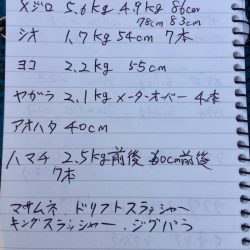 メジロ 5.6kg 4.9kg 86cm
78cm 83cm
シオ 1.7kg 54cm 7本
ヨコ 2.2kg 55cm
ヤガラ 2.1kg メーターオーバー 4本
アオハタ 40cm
ハマチ 2.5kg前後 60cm前後
7本
マサムネ ドリフトスラッシャー
キングスラッシャー、ジグパラ